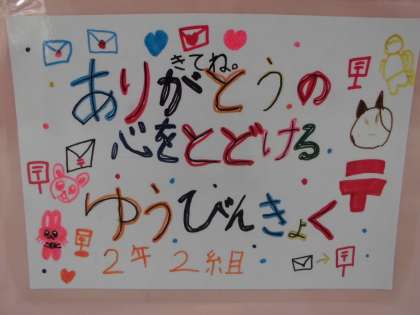 きてね。
ありがとうの
心をとどける
ゆうびんきょく
2年2組